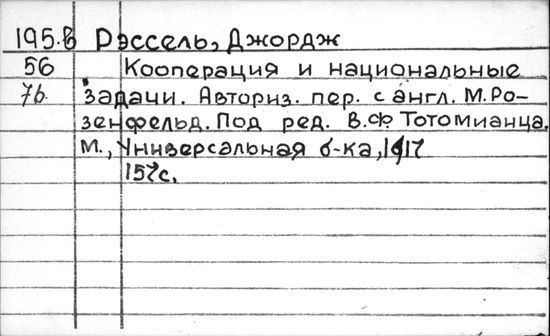 195.в Рэссель, Джордж
56 Кооперация и национальные
7б. задачи. Авториз. пер. с англ. М. Ро-
зенфельд. Под ред. В.Ф Тотомианца.
М., Универсальная б-ка, 1917
157с.